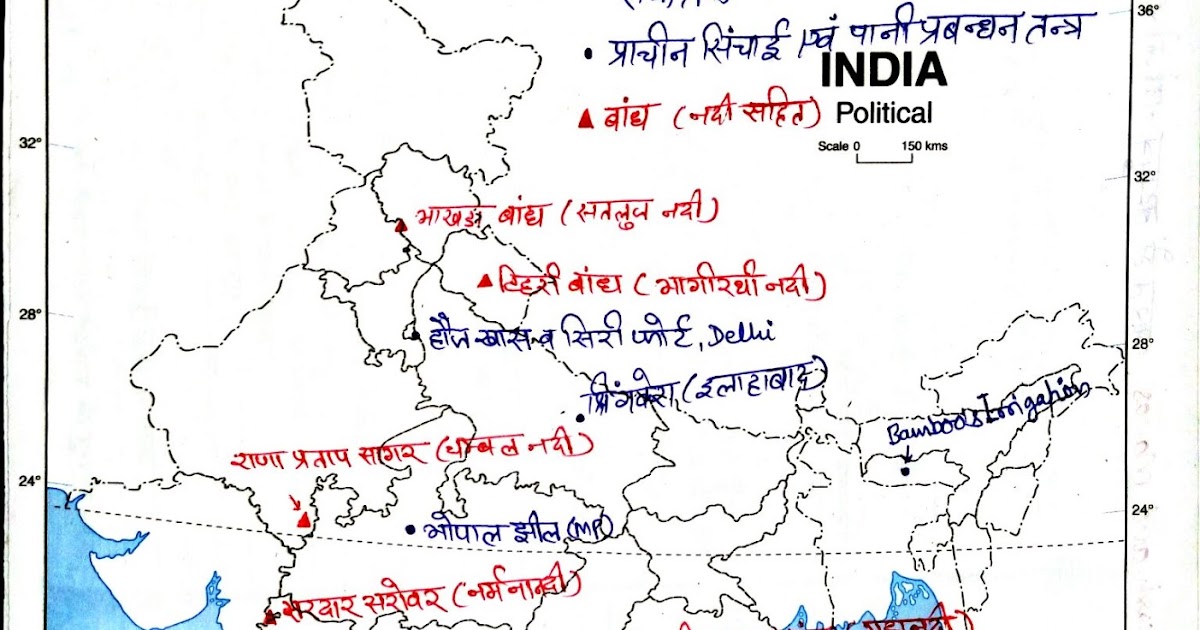 • प्राचीन सिंचाई एवं पानी प्रबन्धन तन्त्र
INDIA
Political
Scale 0 150 kms
▲ बांध (नदी सहित)
36°
32°
32°
भाखड़ा बांध (सतलुज नदी)
टिहरी बांध (भागीरथी नदी)
28°
28°
हौज खास व सिरी फोर्ट, Delhi
(इलाहाबाद)
Bamboo Irrigation
राणा प्रताप सागर (चम्बल नदी)
24°
24°
भोपाल झील (MP)
सरदार सरोवर